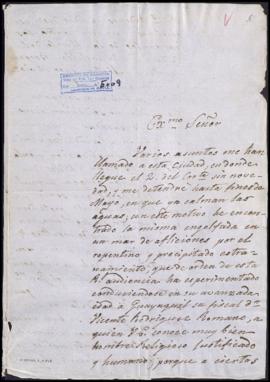 Ex.mo Señor
Varios asuntos me han
llamado a esta ciudad, en donde
llegue el 2. del Corte sin nove-
dad, y me detendré hasta fines de
Mayo, en que ya calman las
aguas, con este motivo he encon-
trado la misma engolfada en
un mar de aflicciones por el
repentino y precipitado estra-
ñamiento, que de orden de esta
Rl. audiencia ha esperimentado
conduciendose en su avanzada
edad a Guayaquil su fiscal Dn
Vicente Rodriguez Romano, a
quien V.E. conoce muy bien
hombre Religioso justificado
y humano; porque a ciertas